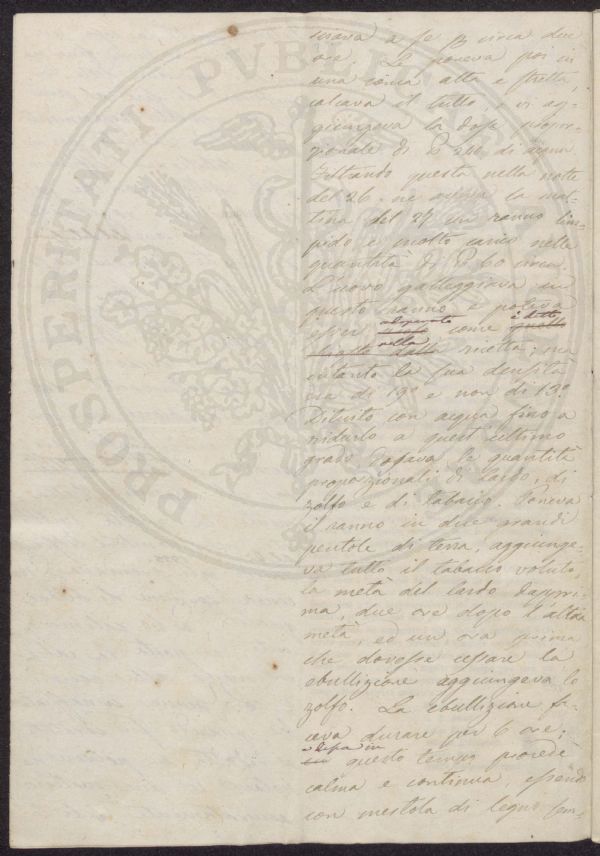 sciava a se per circa due
ore. Le poneva poi in
una conca alta e stretta,
calcava il tutto, e vi ag-
giungeva la dose propor-
zionale di 266 di acqua.
questa nella notte
del 26. ne aveva la mat-
tina del 27 un ranno lim-
pido e molto carico nella
quantità di 60 circa.
L'uovo galleggiava in
questo ranno e poteva
esser adoperato come è detto
nella ricetta; ma
intanto la sua densità
era di 19° e non di 13°.
Diluito con acqua fino a
ridurlo a quest'ultimo
grado pesava le quantità
proporzionali di lardo, di
zolfo e di tabacco. Poneva
il ranno in due grandi
pentole di terra, aggiunge-
va tutto il tabacco voluto,
la metà del lardo dappri-
ma, due ore dopo l'altra
metà, ed un'ora prima
che dovesse cessare la
ebullizione aggiungeva lo
zolfo. La ebullizione fa-
ceva durare per 6 ore;
in
questo tempo procedè
calma e continua, essendo
con mestola di legno sem-
PROSPERITATI PVBLICAE